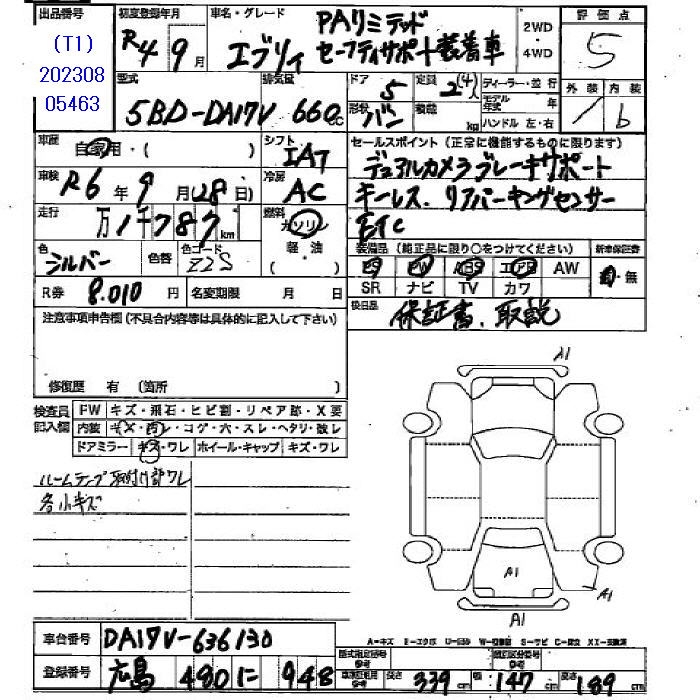 出品番号
(T1)
202308
05463
初度登録年月
R4 9月
車名・グレード
エブリィ
PAリミテッド
セーフティサポート装着車
2WD
4WD
評価点
5
型式
5BD-DA17V
排気量
660cc
ドア
5
形状
バン
定員
2(4)人
積載
kg
ディーラー・並行
モデル年式 年
ハンドル 左・右
外装
内装
b
車歴
自家用・( )
シフト
IAT
車検
R6年9月(28日)
冷房
AC
走行
万1千787km
燃料
ガソリン
軽・油
( )
色
シルバー
色替
色コード
Z2S
R券 8.010円
名変期限 月 日
セールスポイント(正常に機能するものに限ります)
デュアルカメラブレーキサポート
キーレス、リアパーキングセンサー
ETC
装備品(純正品に限り○をつけてください)
新車保証書
PS PW ABS エアB AW
SR ナビ TV カワ
有・無
後日品
保証書、取説
注意事項申告欄(不具合内容等は具体的に記入して下さい)
修復歴 有 (箇所 )
検査員記入欄
FW キズ・飛石・ヒビ割・リペア跡・X要
内装 キズ・汚レ・コゲ・穴・スレ・ヘタリ・破レ
ドアミラー キズ・ワレ ホイール・キャップ キズ・ワレ
ルームランプ取付け部ワレ
各小キズ
A1
A1
A1
A1
A-キズ E-エクボ U-凹み W-補修跡 S-サビ C-腐食 XX-交換済
車台番号
DA17V-636130
登録番号
広島 480 に 948
型式指定番号
類別区分番号
長さ 339cm
幅 147cm
高さ 189cm